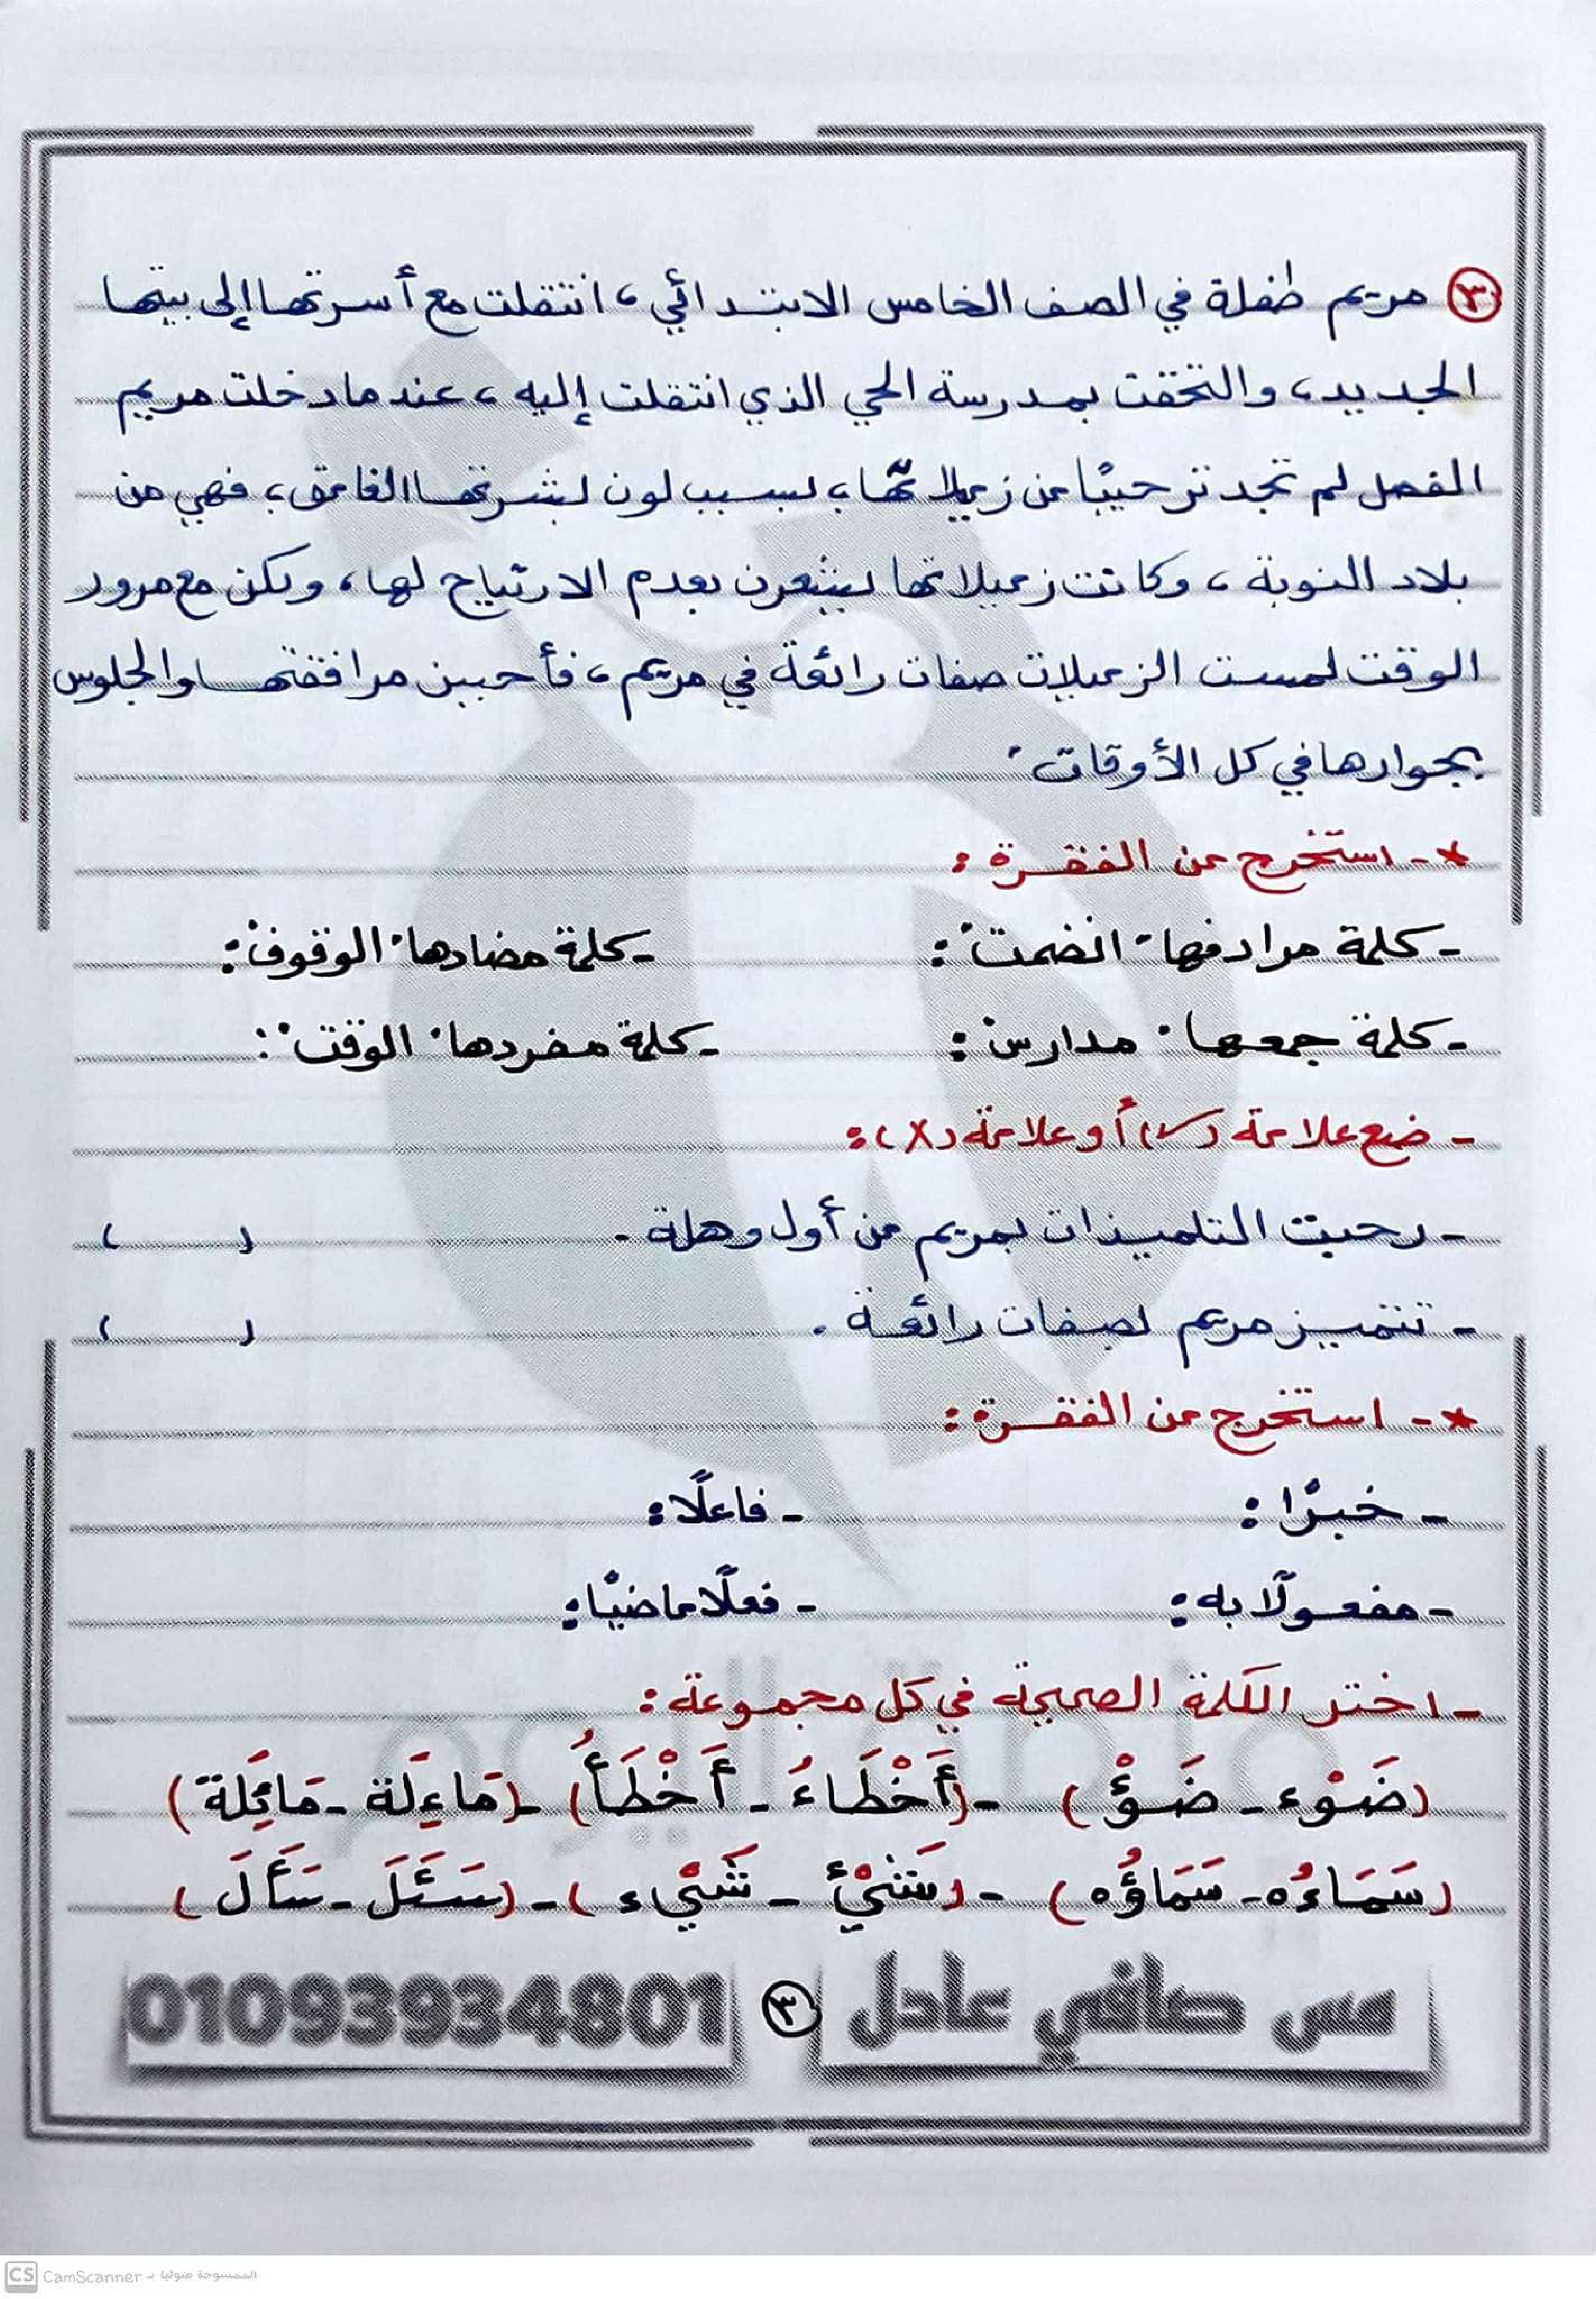 ٣ مريم طفلة في الصف الخامس الابتدائي، انتقلت مع أسرتها إلى بيتها
الجديد، والتحقت بمدرسة الحي الذي انتقلت إليه، عندما دخلت مريم
الفصل لم تجد ترحيبًا من زميلاتها، بسبب لون بشرتها الغامق، فهي من
بلاد النوبة، وكانت زميلاتها يشعرن بعدم الارتياح لها، ولكن مع مرور
الوقت لمست الزميلات صفات رائعة في مريم، فأحببن مرافقتها والجلوس
بجوارها في كل الأوقات.
*- استخرج من الفقرة:
- كلمة مرادفها "انضمت": - كلمة مضادها "الوقوف":
- كلمة جمعها "مدارس": - كلمة مفردها "الوقت":
- ضع علامة (✓) أو علامة (X):
- رحبت التلميذات بمريم من أول وهلة. ( )
- تتميز مريم بصفات رائعة. ( )
*- استخرج من الفقرة:
- خبرًا: - فاعلًا:
- مفعولًا به: - فعلًا ماضيًا:
- اختر الكلمة الصحيحة في كل مجموعة:
(ضَوْء - ضَوْؤ) - (أَخْطَاءُ - أَخْطَأُ) - (مَاءِلَة - مَائِلَة)
(سَمَاءُه - سَمَاؤُه) - (شَيْئ - شَيْء) - (سَئَلَ - سَأَلَ)
مس صافي عادل ٣ 01093934801
CS CamScanner الممسوحة ضوئيا بـ